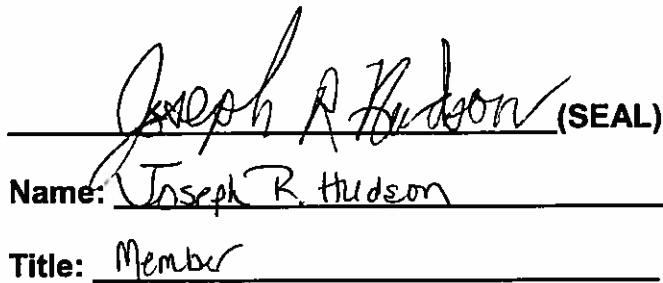 Joseph R Hudson (SEAL)
Name: Joseph R. Hudson
Title: Member